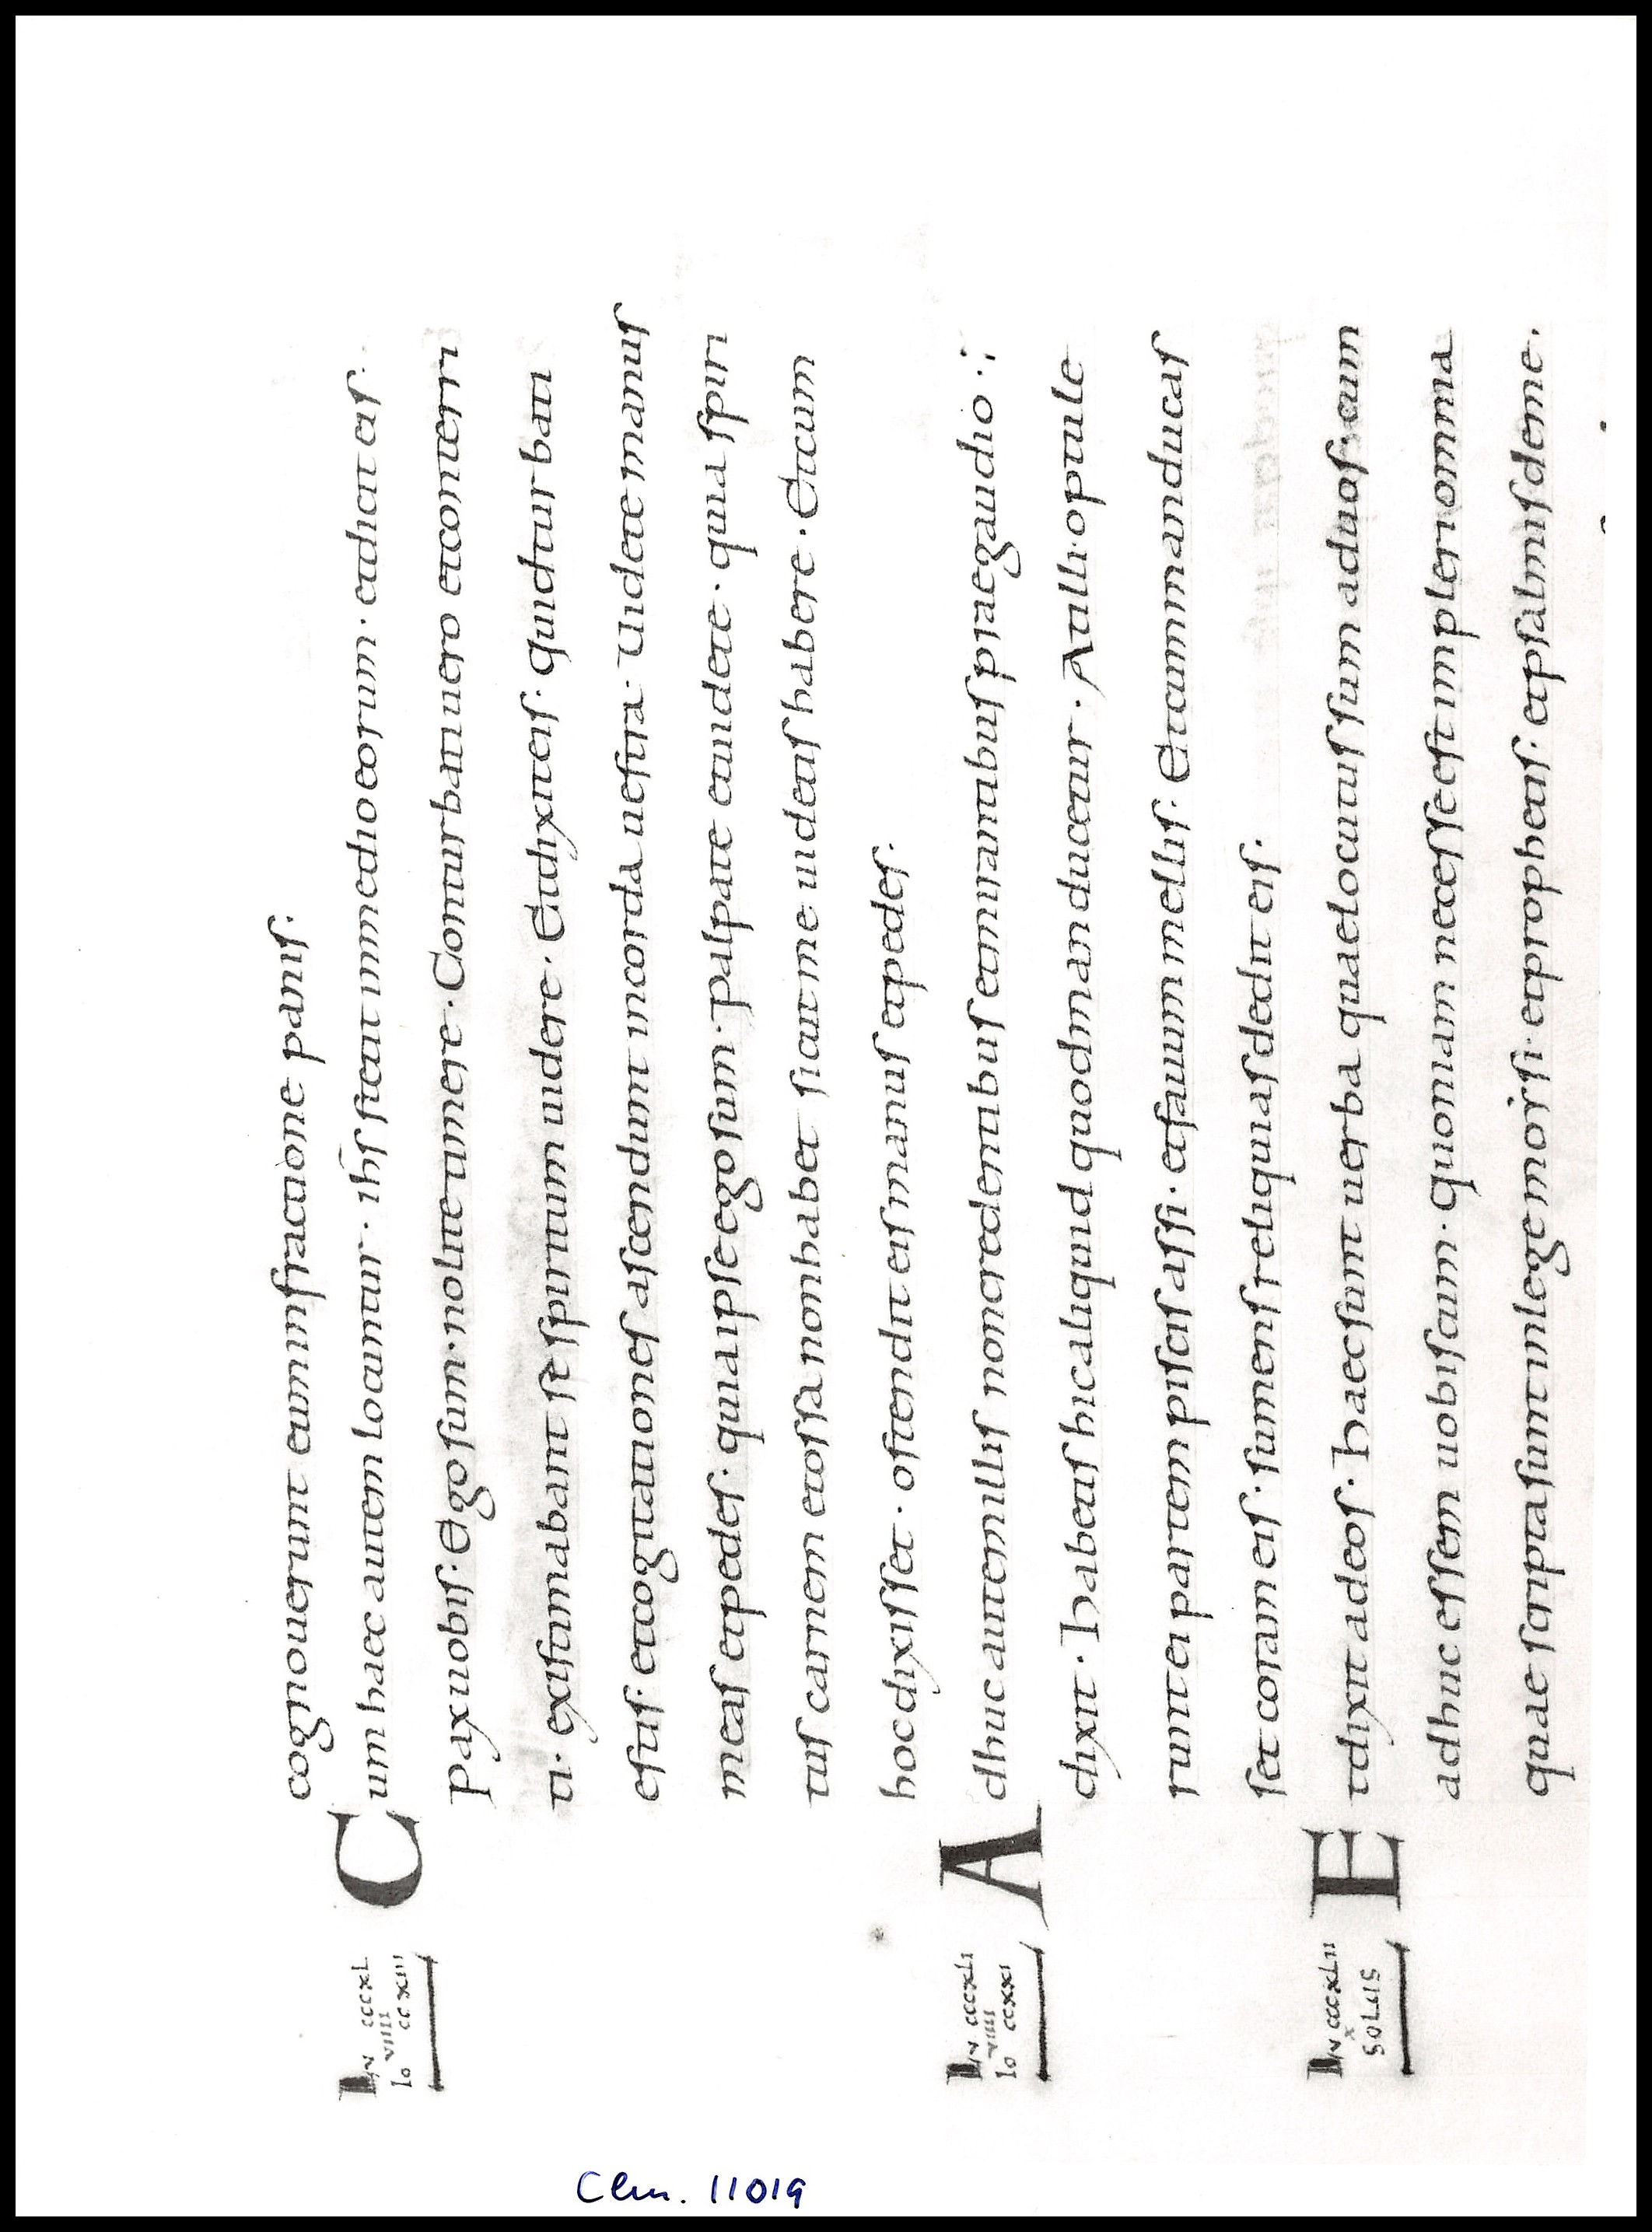 cognouerunt eum infractione panis.
Cum haec autem locuntur. ihs stetit inmedio eorum. et dicit eis.
Pax uobis. Ego sum. nolite timere. Conturbati uero et conterri
ti. existimabant se spiritum uidere. Et dixit eis. quid turbati
estis. et cogitationes ascendunt in corda uestra. Uidete manus
meas et pedes. quia ipse ego sum. palpate et uidete. quia spiri
tus carnem et ossa non habet sicut me uidetis habere. Et cum
hoc dixisset. ostendit eis manus et pedes.
Adhuc autem illis non credentibus et mirantibus prae gaudio.
dixit. habetis hic aliquid quod manducetur. At illi optule
runt ei partem piscis assi. et fauum mellis. Et cum manducas
set coram eis. sumens reliquias dedit eis.
Et dixit ad eos. haec sunt uerba quae locutus sum ad uos. cum
adhuc essem uobiscum. quoniam necesse est impleri omnia
quae scripta sunt in lege moysi. et prophetis. et psalmis de me.
IN CCCXL
VIIII
Io CCXIII
IN CCCXLI
VIIII
Io CCXXI
IN CCCXLII
X
SOLUS
Clm. 11019